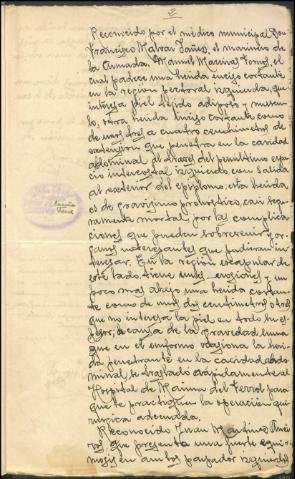 Reconocido por el médico municipal Don
Francisco Mabran Yañez, el marinero de
la Armada, Manuel Macinas Tomé, el
cual padece una herida inciso cortante
en la región pectoral izquierda, que
interesa piel tejido adiposo y muscu-
lo; otra herida inciso cortante como
de unos tres a cuatro centímetros de
extension que penetra en la cavidad
abdominal al través del penúltimo espa
cio intercostal izquierdo con salida
al exterior del epiplomo, esta herida
es de gravísimo pronóstico, casi segu-
ramente mortal por las complica-
ciones que puedan sobrevenir y or-
ganos interesantes que pudieran in-
teresar. En la región escapular de
este lado, tiene una erosión y un
poco mas abajo una herida cortan-
te como de unos dos centímetros o tres
que no interesa la piel en todo su es-
pesor; a causa de la gravedad suma
que en el enfermo ocasiona la heri-
da penetrante en la cavidad abdo
minal, se trasladó rápidamente al
Hospital de Marina del Ferrol para
que le practiquen la operación qui-
rúrgica adecuada.
Reconocido Juan Martinez
ros que presenta una fuerte equi-
mosis en ambos parpados izquierdos